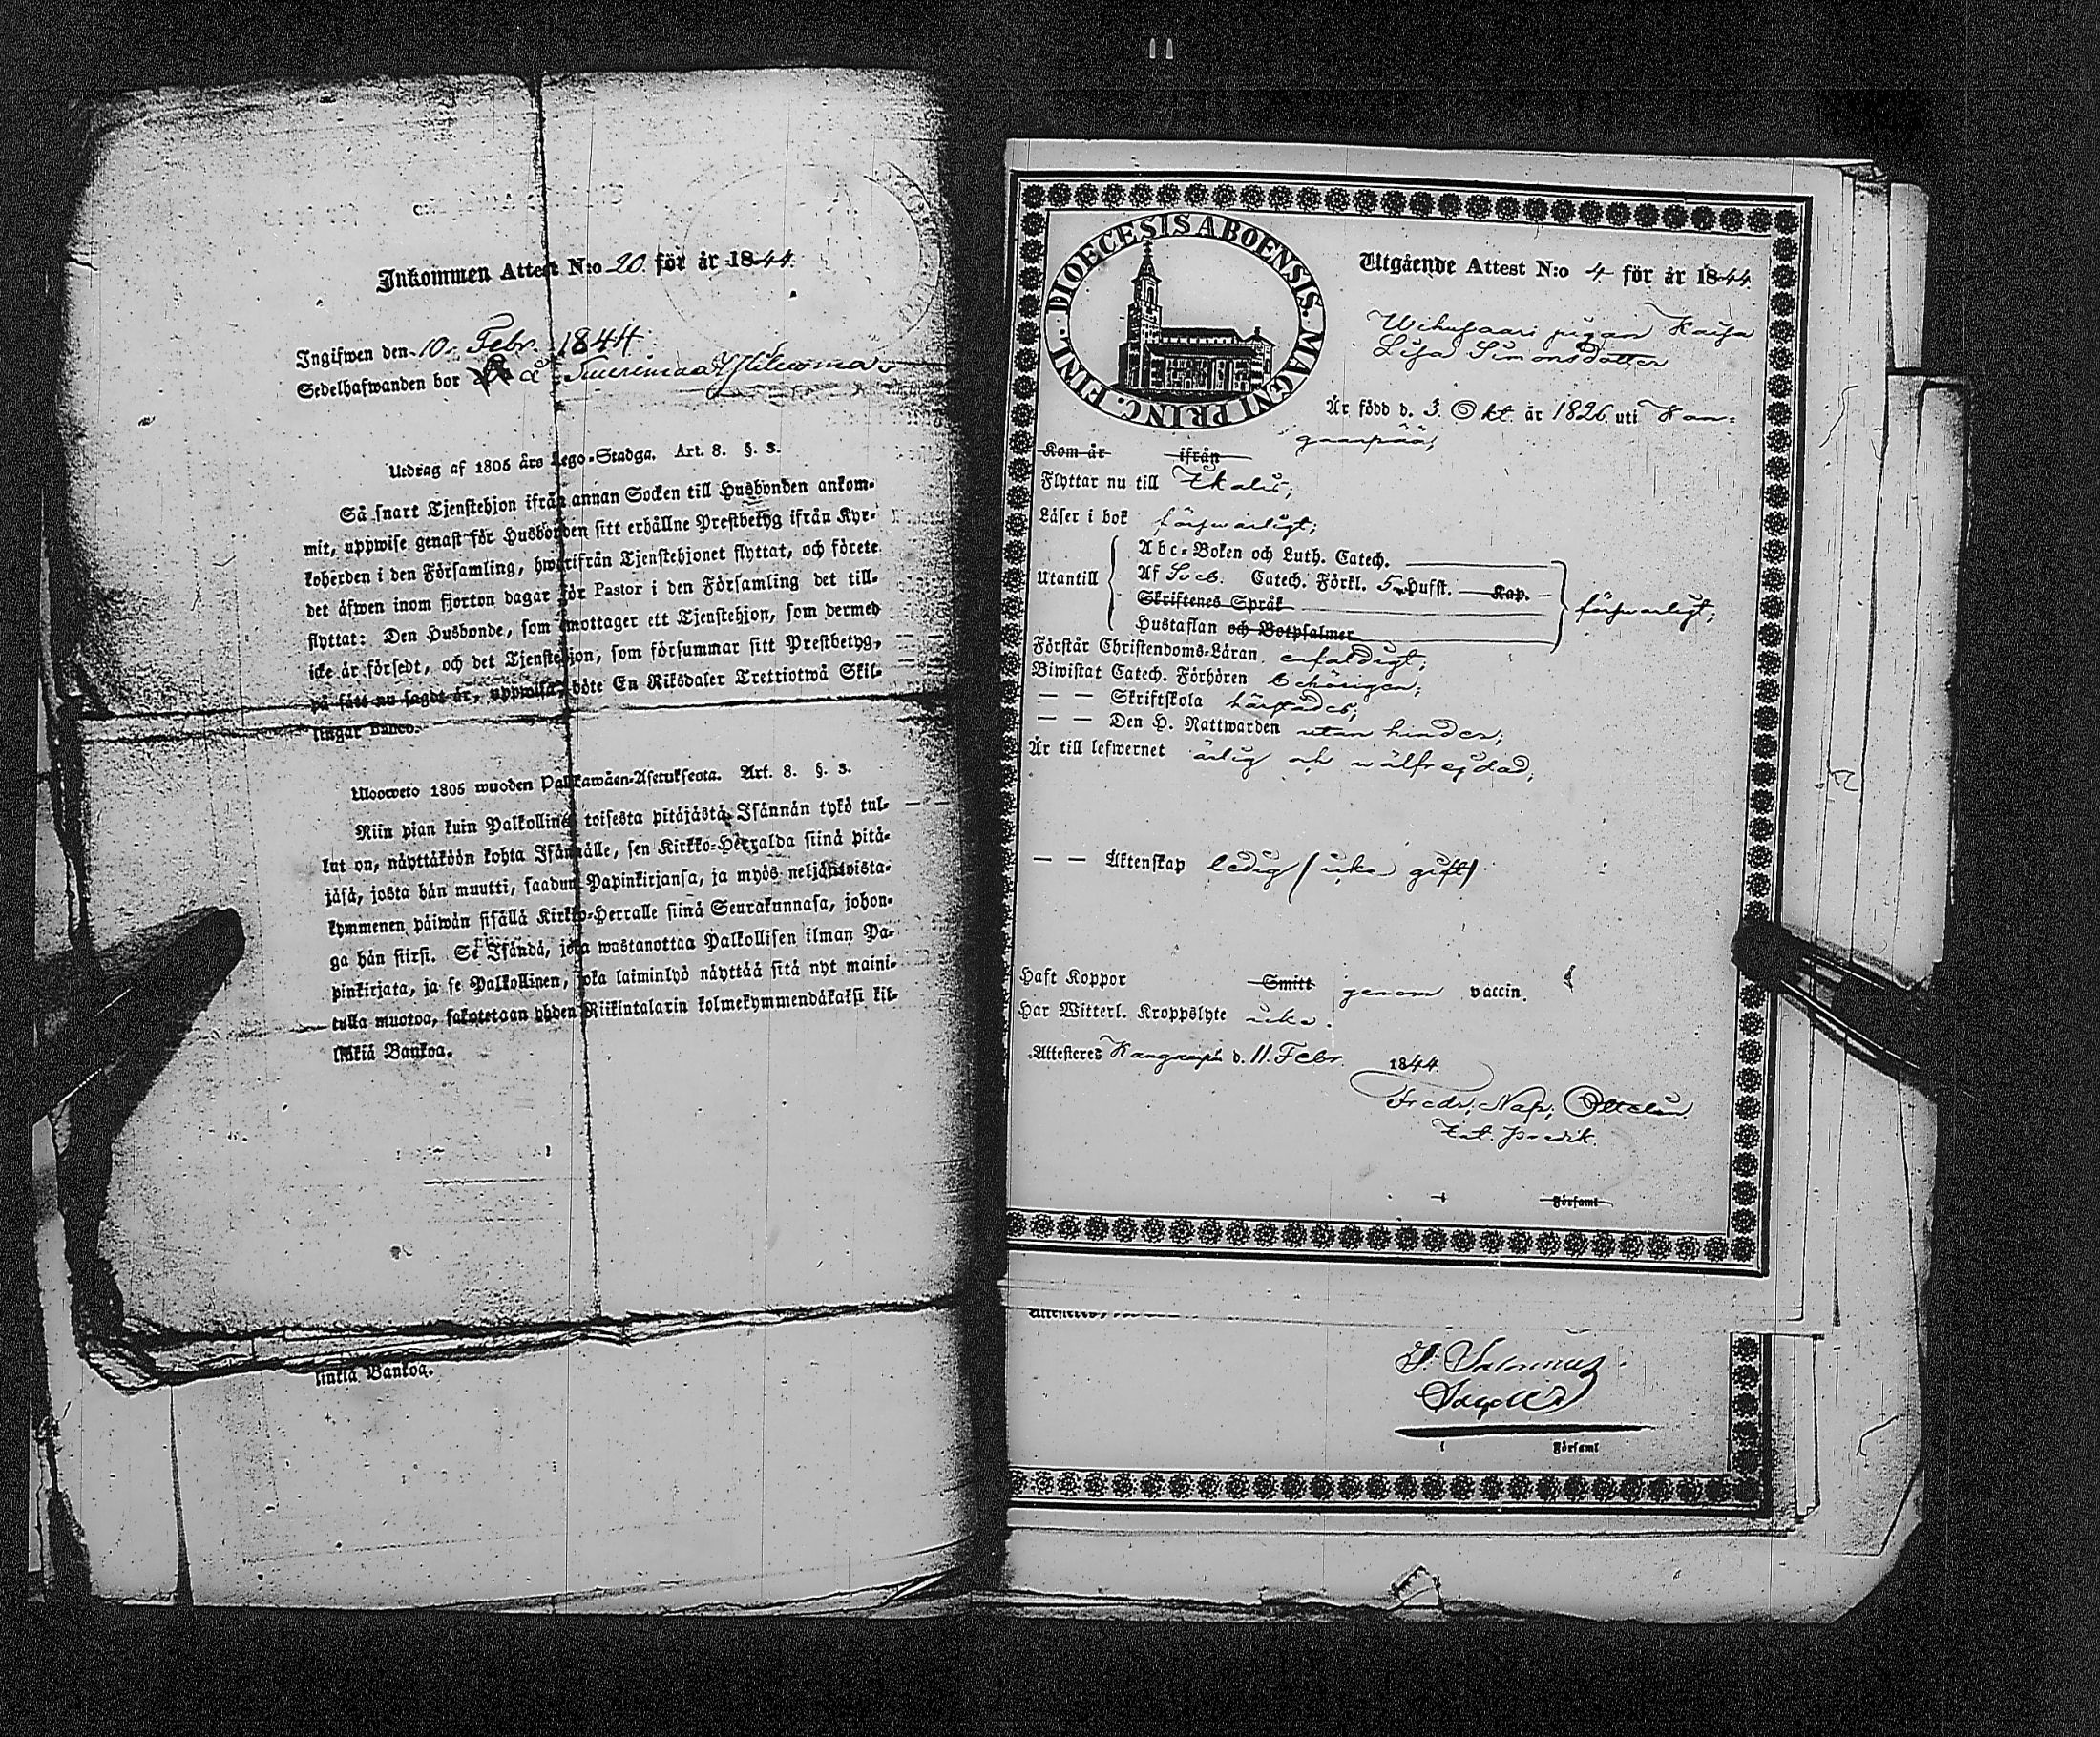 Inkommen Attest N:o 20. för år 1844.
Ingifwen den 10. Febr. 1844.
Sedelhafwanden bor å
Utdrag af 1805 års Lego-Stadga. Art. 8. §. 3.
Så snart Tjenstehjon ifrån annan Socken till Husbonden ankom-
mit, uppwise genast för Husbonden sitt erhållne Prestbetyg ifrån Kyr-
koherden i den Församling, hwarifrån Tjenstehjonet flyttat, och förete
det äfwen inom fjorton dagar för Pastor i den Församling det till-
flyttat: Den Husbonde, som emottager ett Tjenstehjon, som dermed
icke är försedt, och det Tjenstehjon, som försummar sitt Prestbetyg,
på sätt nu sagdt är, uppwisa, böte En Riksdaler Trettiotwå Skil-
lingar Banco.
Uloosweto 1805 wuoden Palkawäen-Asetuksesta. Art. 8. §. 3.
Niin pian kuin Palkollinen toisesta pitäjästä Isännän tykö tul-
lut on, näyttäköön kohta Isännälle, sen Kirkko-Herralda siinä pitä-
jäsä, josta hän muutti, saadun Papinkirjansa, ja myös neljäntoista-
kymmenen päiwän sisällä Kirkko-Herralle siinä Seurakunnasa, johon-
ga hän siirsi. Se Isändä, joka wastanottaa Palkollisen ilman Pa-
pinkirjata, ja se Palkollinen, joka laiminlyö näyttää sitä nyt maini-
tulla muotoa, sakotetaan yhden Riikintalarin kolmekymmendäkaksi kil-
linkiä Bankoa.
linkiä Bankoa.
FINL. DIOECESIS ABOENSIS. MAGNI PRINC.
Utgående Attest N:o 4 för år 1844.
pigan Kaisa
Lisa Simonsdotter
Är född d. 3. Okt. år 1826 uti Kan-
gaanpää;
Kom år ifrån
Flyttar nu till Ikalis;
Läser i bok förswarligt;
Utantill
Abc-Boken och Luth. Catech.
Af Sveb. Catech. Förkl. 5 Hufst. Kap.
Skriftenes Språk
Hustaflan och Botpsalmer
förswarligt;
Förstår Christendoms-Läran enfaldigt;
Biwistat Catech. Förhören behörigen;
— — Skriftskola härstädes;
— — Den H. Nattwarden utan hinder;
Är till lefwernet ärlig och wälfrejdad;
— — Äktenskap ledig (icke gift)
Haft Koppor Smitt genom vaccin.
Har Witterl. Kroppslyte icke.
Attesteres Kangaanpää d. 11. Febr. 1844.
Fredr. Nap.
Församl
Attesteres
Församl